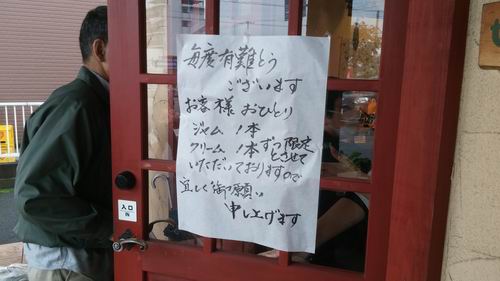 毎度有難とう
ございます
お客様おひとり
ジャム 1本
クリーム 1本ずつ限定
とさせて
いただいておりますので
宜しく御願い
申し上げます
入口